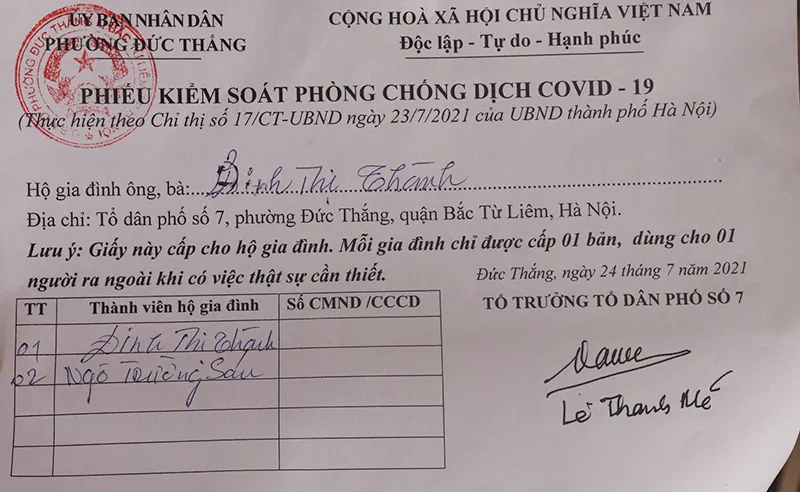 ỦY BAN NHÂN DÂN
PHƯỜNG ĐỨC THẮNG
CỘNG HOÀ XÃ HỘI CHỦ NGHĨA VIỆT NAM
Độc lập - Tự do - Hạnh phúc
PHIẾU KIỂM SOÁT PHÒNG CHỐNG DỊCH COVID - 19
(Thực hiện theo Chỉ thị số 17/CT-UBND ngày 23/7/2021 của UBND thành phố Hà Nội)
Hộ gia đình ông, bà: Đinh Thị Thành
Địa chỉ: Tổ dân phố số 7, phường Đức Thắng, quận Bắc Từ Liêm, Hà Nội.
Lưu ý: Giấy này cấp cho hộ gia đình. Mỗi gia đình chỉ được cấp 01 bản, dùng cho 01
người ra ngoài khi có việc thật sự cần thiết.
Đức Thắng, ngày 24 tháng 7 năm 2021
TỔ TRƯỞNG TỔ DÂN PHỐ SỐ 7
TT Thành viên hộ gia đình Số CMND /CCCD
01 Đinh Thị Thành
02 Ngô Trường Sơn
Lê Thanh